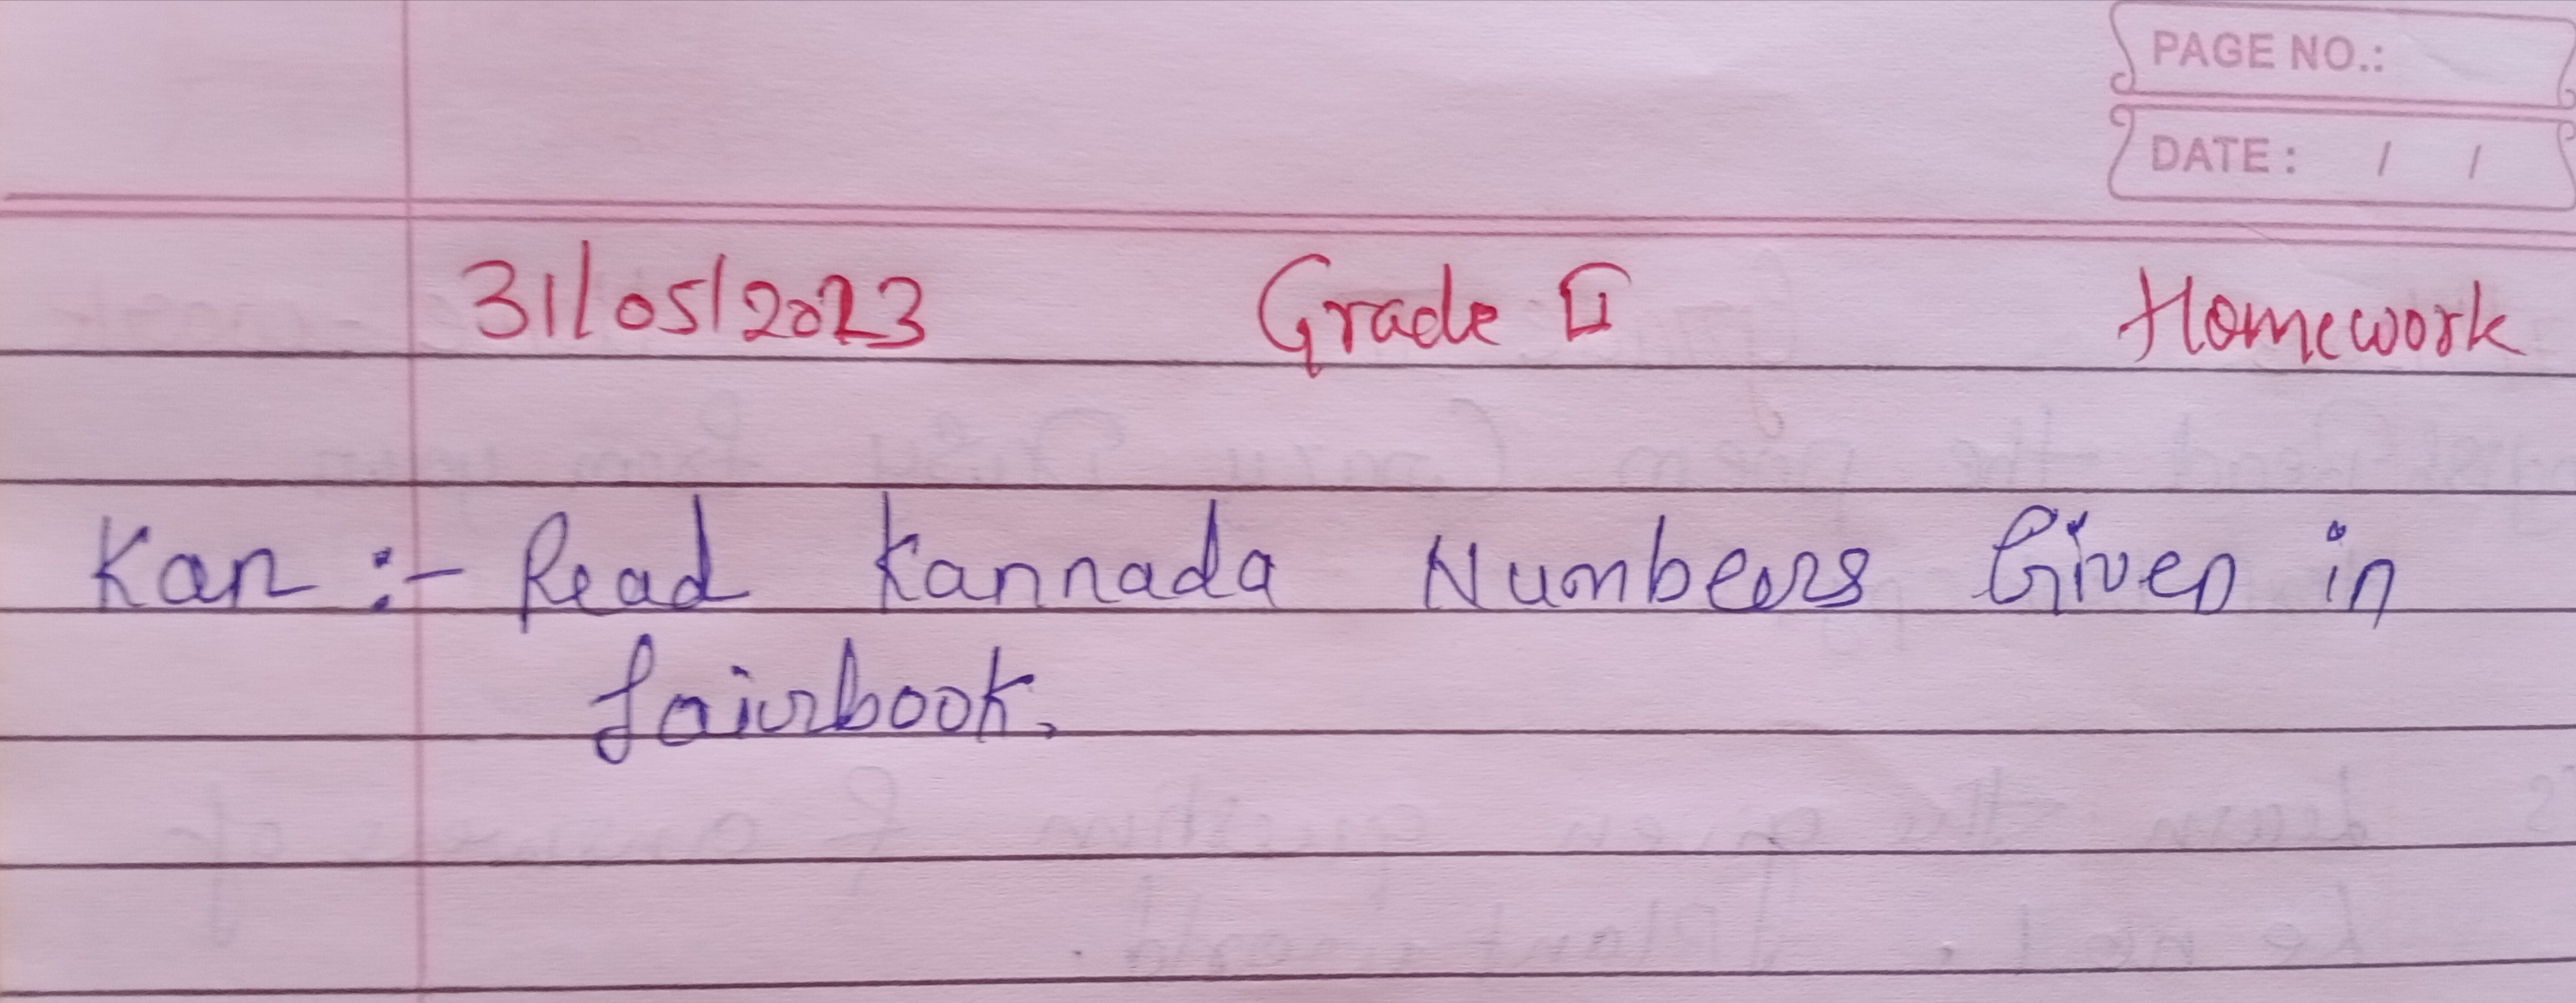 PAGE NO.:
DATE : / /
31/05/2023 Grade II Homework
Kan :- Read Kannada Numbers Given in
fairbook.